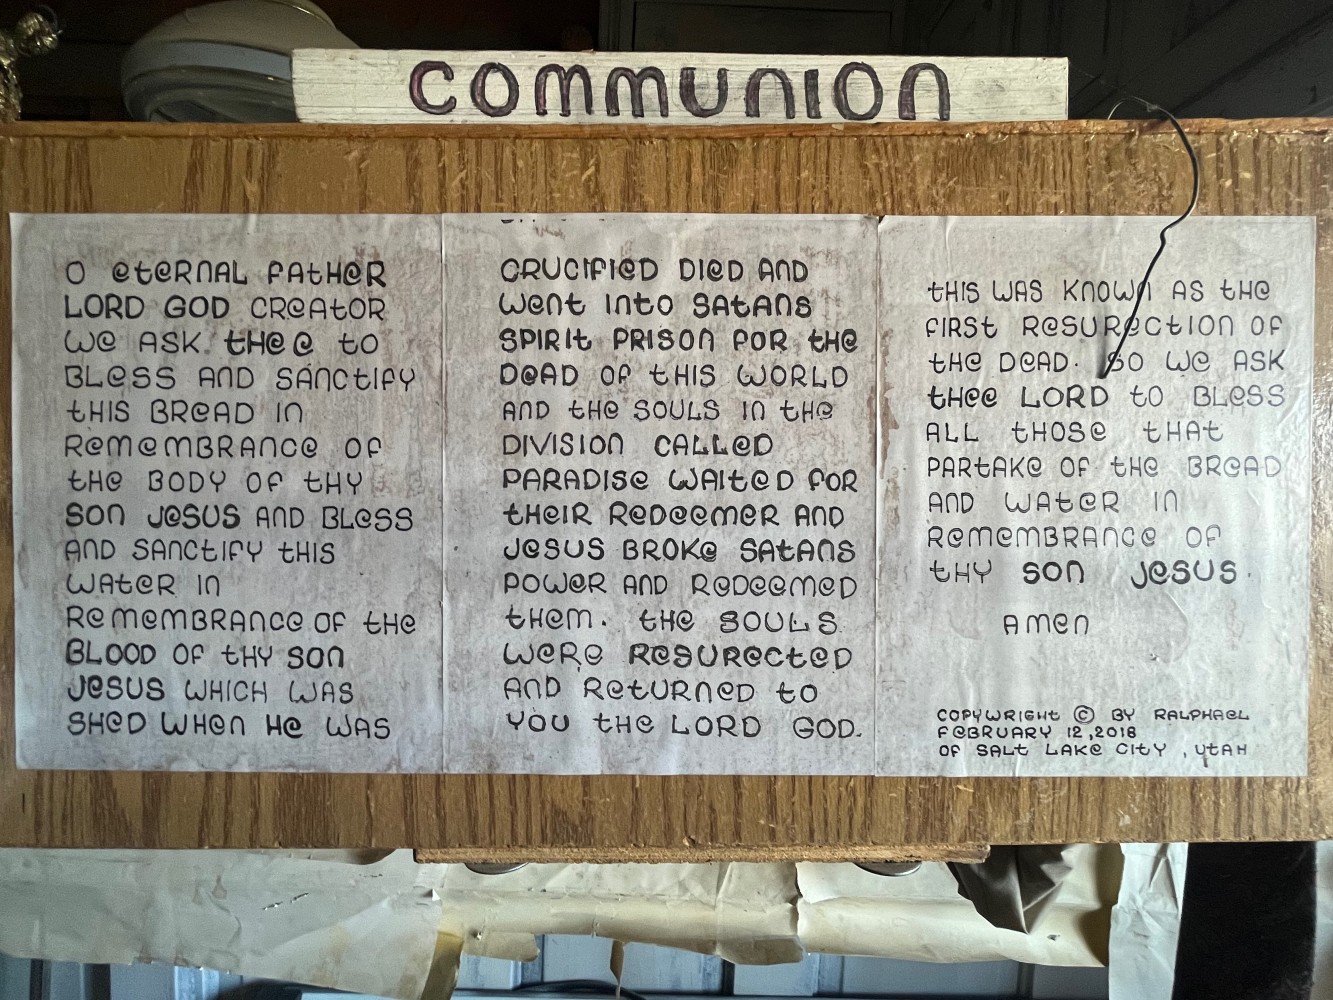 COMMUNION
O eteRNAL FAtHeR
LORD GOD CReAtOR
We ASK tHee to
BLeSS AND SANCtIFY
tHIS BReAD IN
ReMeMBRANCe OF
tHe BODY OF tHY
SON JeSUS AND BLeSS
AND SANCtIFY tHIS
WAteR IN
ReMeMBRANCe OF tHe
BLOOD OF tHY SON
JeSUS WHICH WAS
SHeD WHeN He WAS
CRUCIFIeD DIeD AND
WeNt INtO SAtANS
SPIRIt PRISON FOR tHe
DeAD OF tHIS WORLD
AND tHe SOULS IN tHe
DIVISION CALLeD
PARADISe WAIteD FOR
tHeIR ReDeeMeR AND
JeSUS BROKe SAtANS
POWeR AND ReDeeMeD
tHeM. tHe SOULS
WeRe ReSUReCteD
AND RetURNeD to
YOU tHe LORD GOD.
tHIS WAS KNOWN AS tHe
FIRSt ReSUReCtION OF
tHe DeAD. SO We ASK
tHee LORD to BLeSS
ALL tHOSe tHAt
PARtAKe OF tHe BReAD
AND WAteR IN
ReMeMBRANCe OF
tHY SON JeSUS.
AMeN
COPYWRIGHt © BY RALPHAeL
FeBRUARY 12,2018
OF SALt LAKe CItY , UtAH